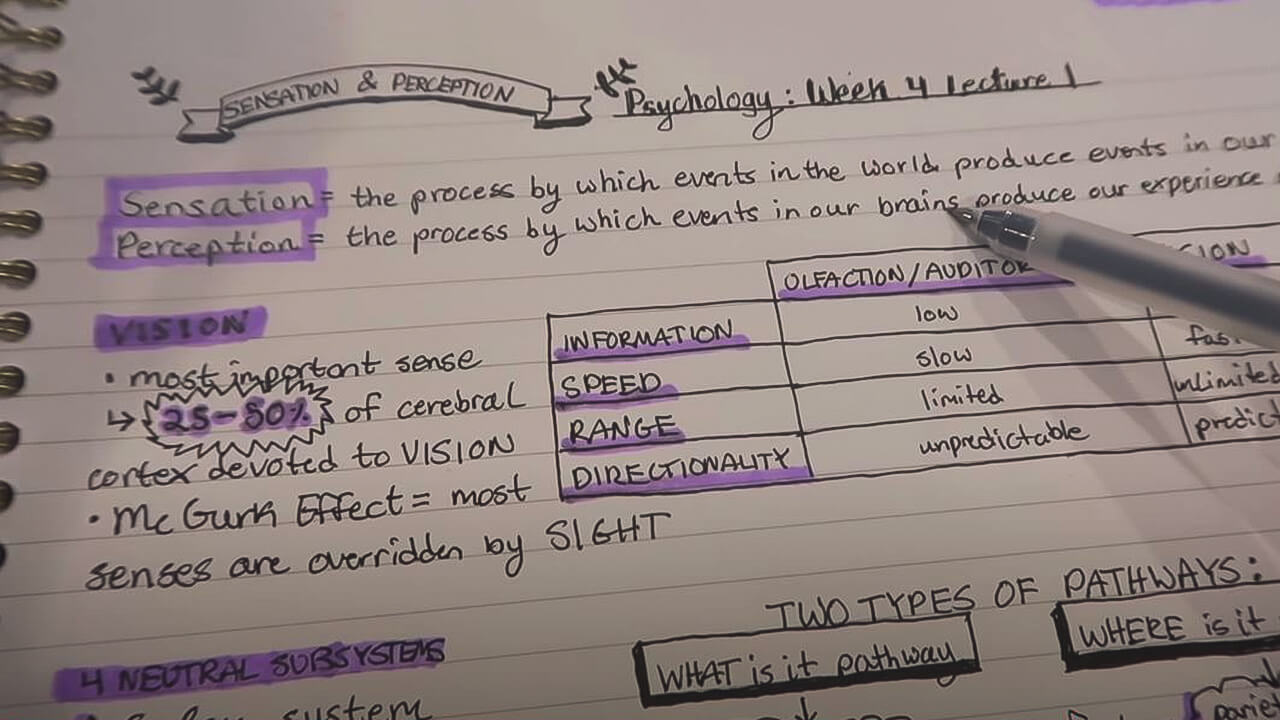 SENSATION & PERCEPTION
Psychology: Week 4 Lecture 1
Sensation = the process by which events in the world produce events in our
Perception = the process by which events in our brains produce our experience
OLFACTION/AUDITOR
INFORMATION low
SPEED slow
RANGE limited unlimited
DIRECTIONALITY unpredictable
VISION
• most important sense
↳ 25-50% of cerebral
cortex devoted to VISION
• McGurk Effect = most
senses are overridden by SIGHT
TWO TYPES OF PATHWAYS:
WHAT is it pathway
WHERE is it
4 NEUTRAL SUBSYSTEMS
system